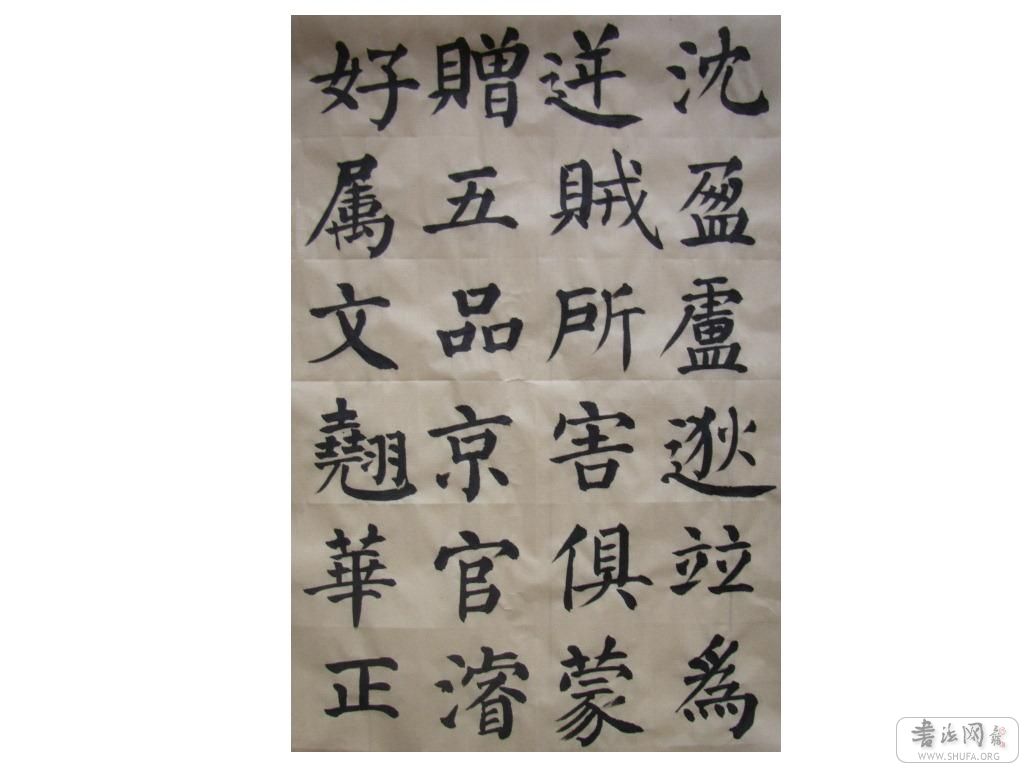 沈盈盧逖竝爲
逆賊所害俱蒙
贈五品京官濬
好属文翹華正
書法网
WWW.SHUFA.ORG